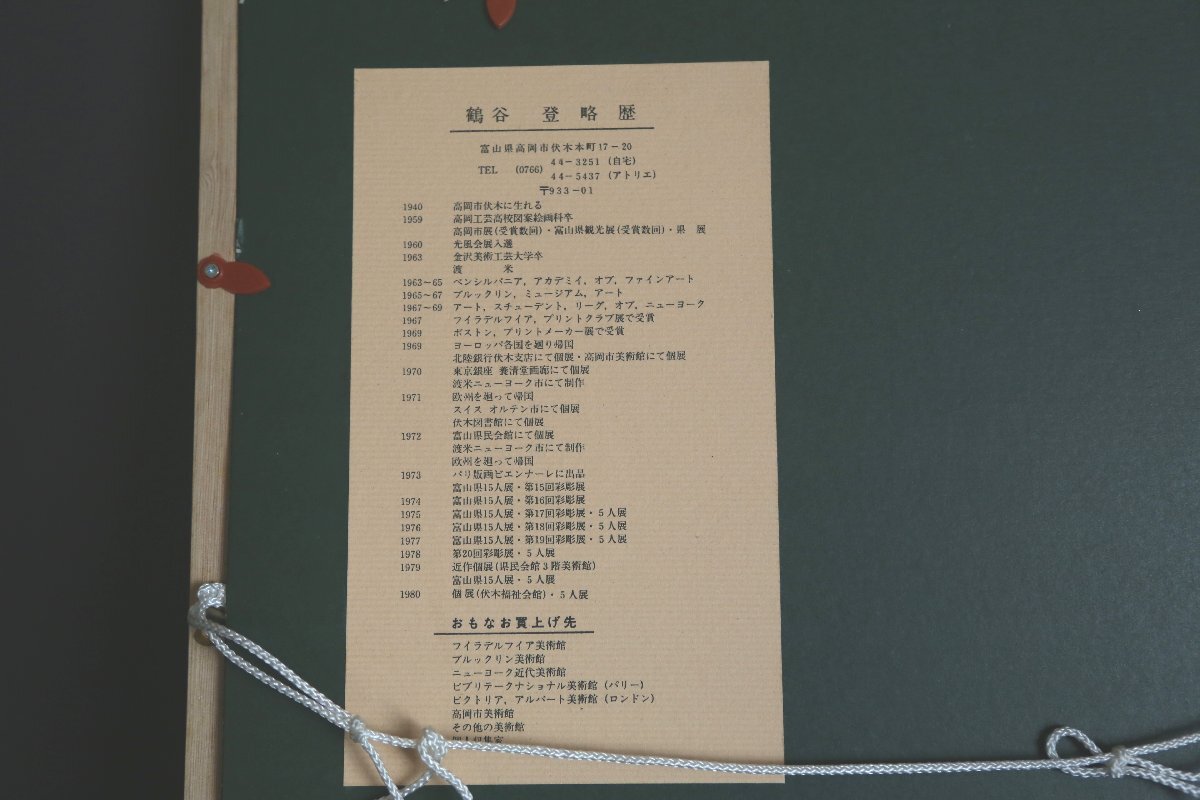 鶴谷 登 略 歴
富山県高岡市伏木本町17-20
TEL (0766) 44-3251 (自宅)
44-5437 (アトリエ)
〒933-01
1940 高岡市伏木に生れる
1959 高岡工芸高校図案絵画科卒
高岡市展(受賞数回)・富山県観光展(受賞数回)・県 展
1960 光風会展入選
1963 金沢美術工芸大学卒
渡 米
1963~65 ペンシルバニア, アカデミイ, オブ, ファインアート
1965~67 ブルックリン, ミュージアム, アート
1967~69 アート, スチューデント, リーグ, オブ, ニューヨーク
1967 フイラデルフイア, プリントクラブ展で受賞
1969 ボストン, プリントメーカー展で受賞
1969 ヨーロッパ各国を廻り帰国
北陸銀行伏木支店にて個展・高岡市美術館にて個展
1970 東京銀座 養清堂画廊にて個展
渡米ニューヨーク市にて制作
1971 欧州を廻って帰国
スイス オルテン市にて個展
伏木図書館にて個展
1972 富山県民会館にて個展
渡米ニューヨーク市にて制作
欧州を廻って帰国
1973 パリ版画ビエンナーレに出品
富山県15人展・第15回彩彫展
1974 富山県15人展・第16回彩彫展
1975 富山県15人展・第17回彩彫展・5人展
1976 富山県15人展・第18回彩彫展・5人展
1977 富山県15人展・第19回彩彫展・5人展
1978 第20回彩彫展・5人展
1979 近作個展(県民会館3階美術館)
富山県15人展・5人展
1980 個展(伏木福祉会館)・5人展
おもなお買上げ先
フイラデルフイア美術館
ブルックリン美術館
ニューヨーク近代美術館
ビブリテークナショナル美術館 (パリー)
ビクトリア, アルバート美術館 (ロンドン)
高岡市美術館
その他の美術館